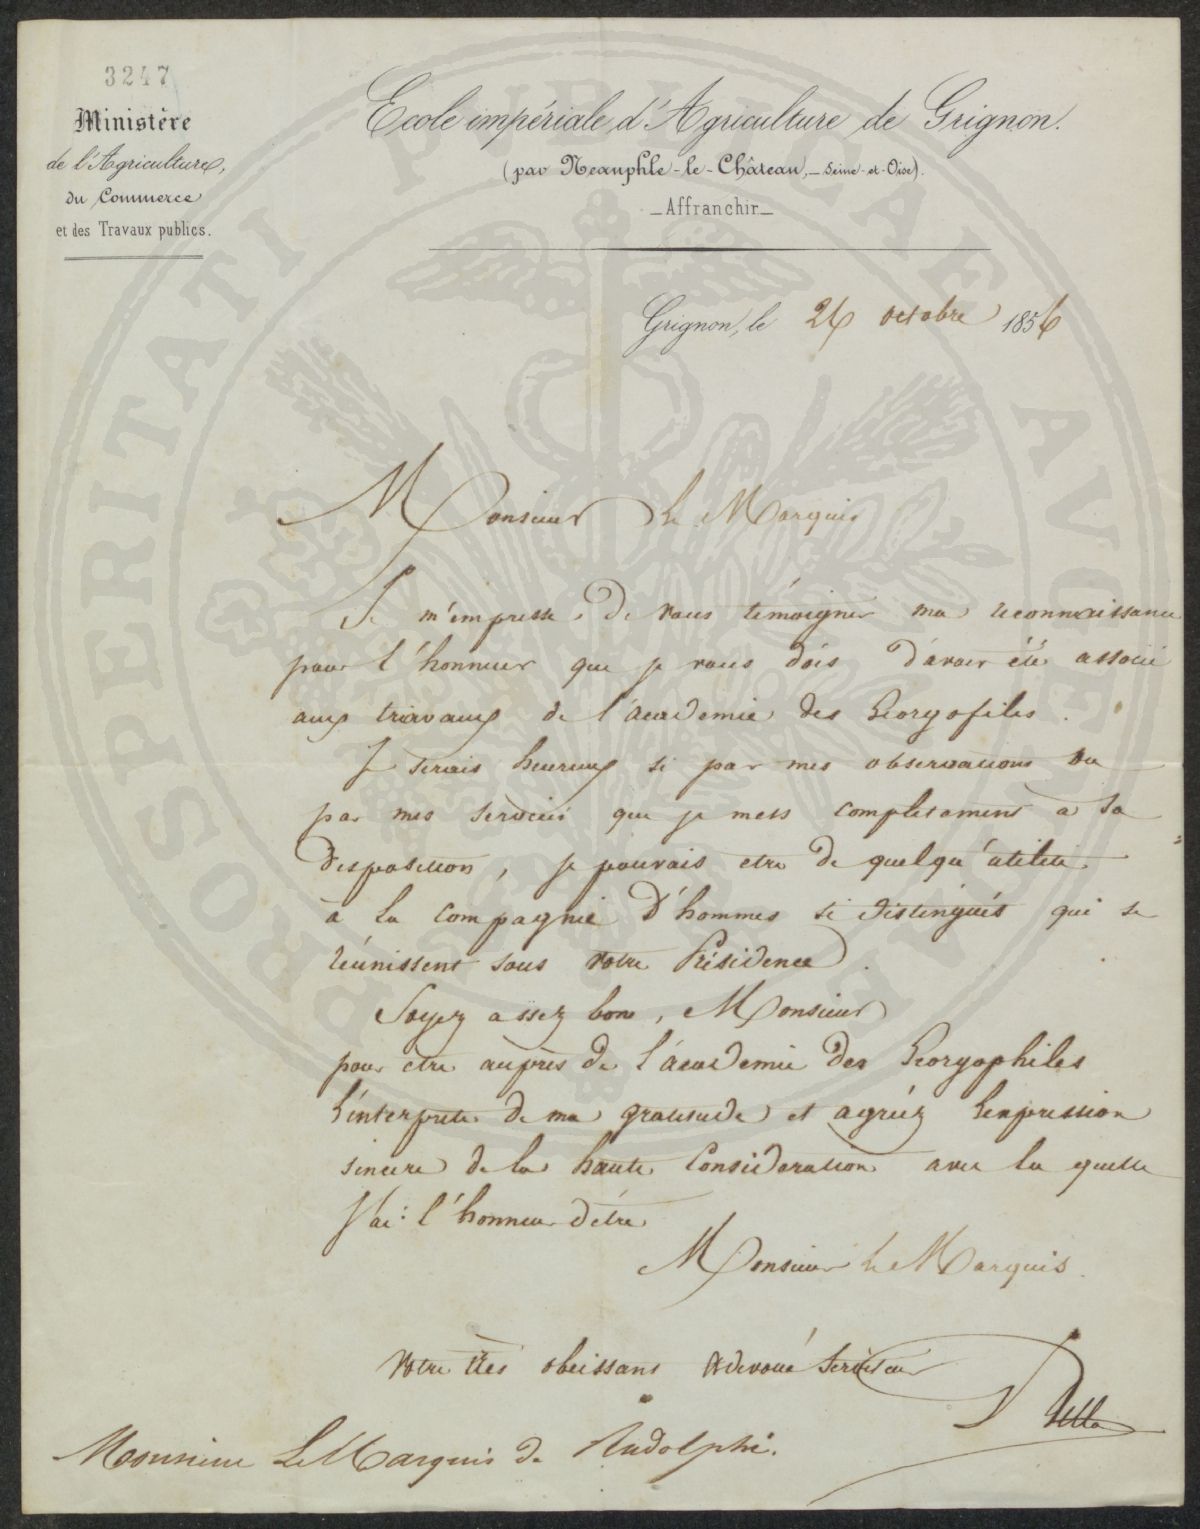 3247
Ministère
de l'Agriculture,
du Commerce
et des Travaux publics.
Ecole impériale d'Agriculture de Grignon.
(par Neauphle-le-Château,-Seine-et-Oise).
-Affranchir-
Grignon, le 26 octobre 1856
Monsieur Le Marquis
Je m'empresse de vous témoigner ma reconnaissance
pour l'honneur que je vous dois d'avoir été associé
aux travaux de l'académie des Georgofiles.
Je serais heureux si par mes observations ou
par mes services que je mets completament à sa
disposition, je pouvais etre de quelqu'utilité
à la compagnie d'hommes si distingués qui se
réunissent sous votre Présidence.
Soyez assez bon, Monsieur
pour etre auprès de l'académie des Georgophiles
l'interprete de ma gratitude et agréez l'expression
sincere de la haute Considération avec la quelle
J'ai l'honneur d'être
Monsieur Le Marquis.
Votre très obeissant & devoué Serviteur
Bella
Monsieur Le Marquis de Ridolphi.
PROSPERITATI PUBLICAE AUGENDAE